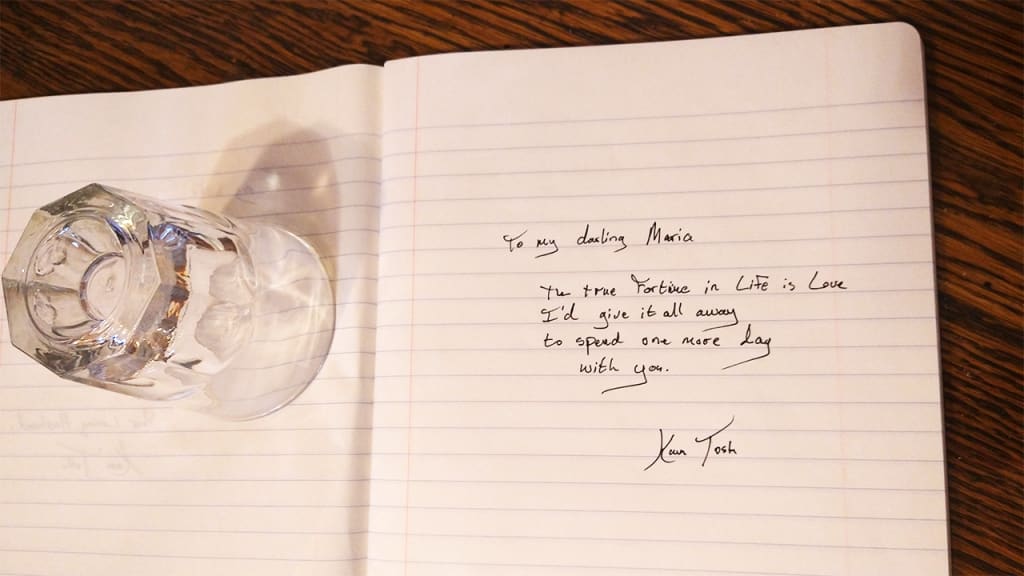 To my darling Maria
The true Fortune in Life is Love
I'd give it all away
to spend one more day
with you.
Tosh